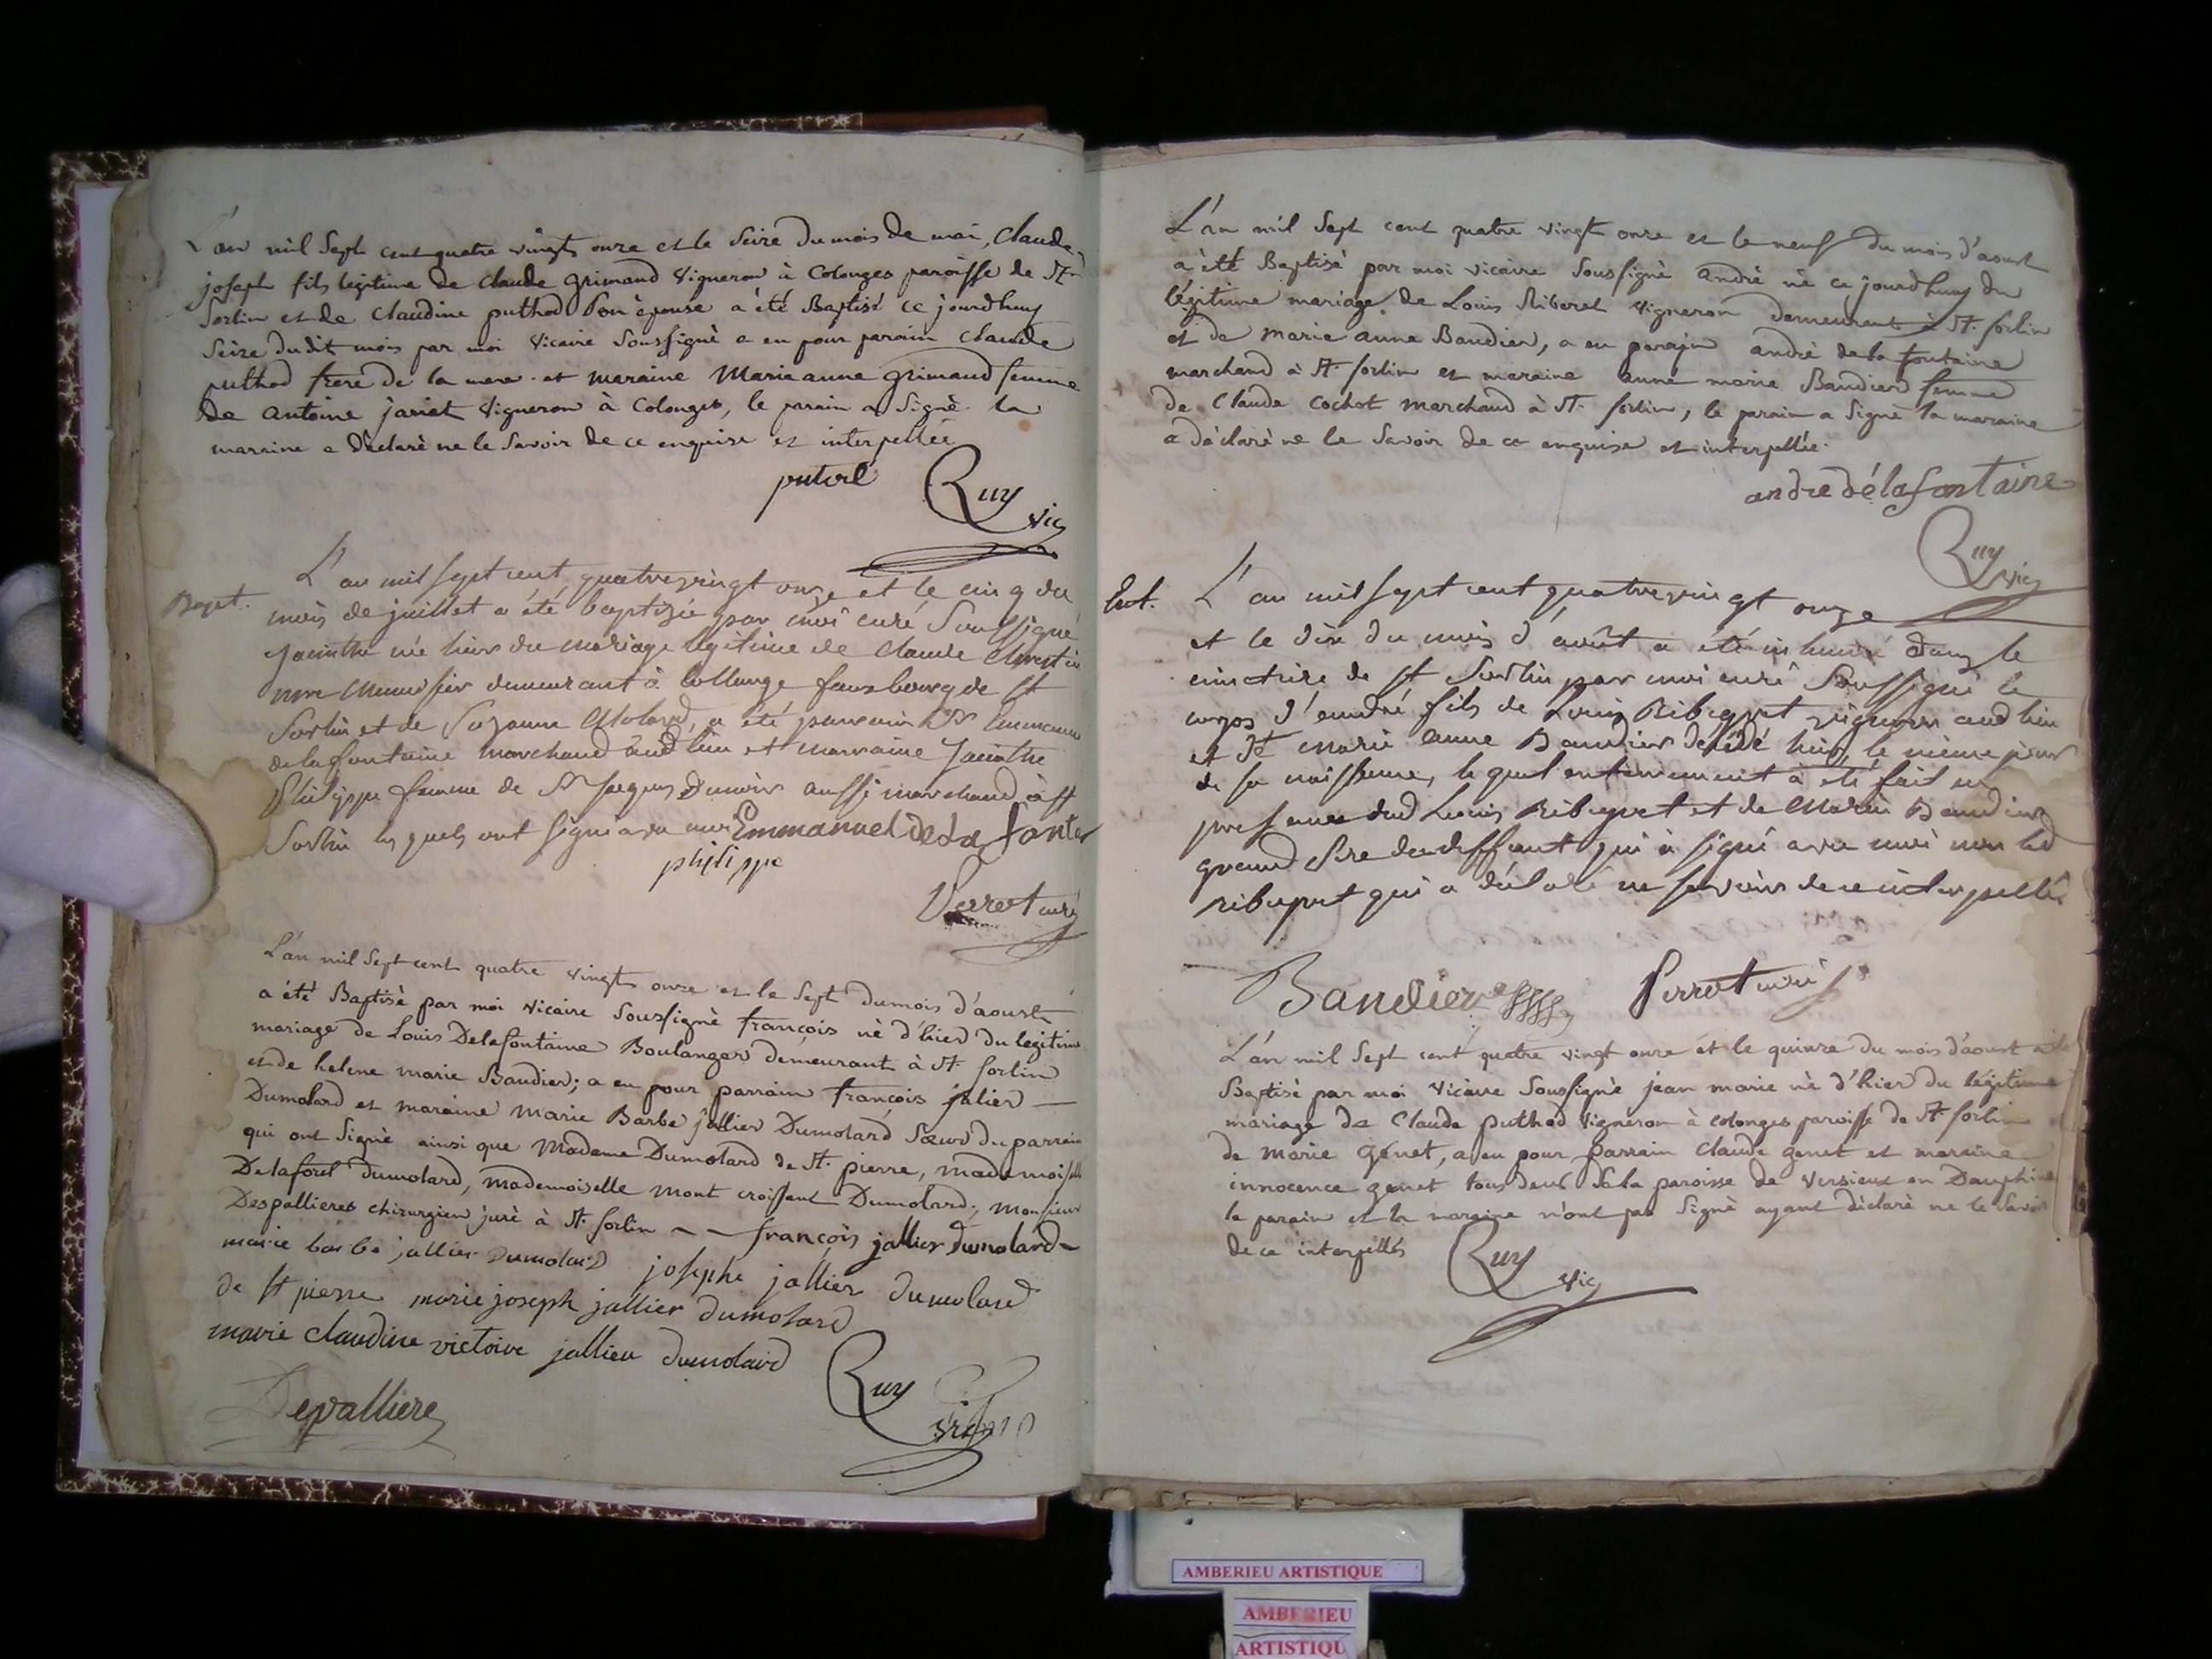 L'an mil Sept cent quatre vingt onze et le Seize du mois de mai, Claude
joseph fils légitime de Claude Grimaud Vigneron à Colonges paroisse de St.
Sorlin et de Claudine puthod Son épouse a été Baptisé ce jourdhuy
Seize dudit mois par moi Vicaire Soussigné a eu pour parain Claude
puthod frere de la mere et maraine Marie anne Grimaud femme
de antoine jariet Vigneron à Colonges, le parain a Signé la
maraine a déclaré ne le Savoir de ce enquise et interpellée
Ruy
vic
Bapt. L'an mil sept cent quatrevingt onze et le cinq du
mois de juillet a été baptizée par moi curé Soussigné
Jacinthe née hier du mariage légitime de Claude
menuisier demeurant à Collonge fauxbourg de St
Sorlin et de Suzanne Molard, a été parrain Sr Emmanuel
delafontaine marchand aud lieu et marraine Jacinthe
Philippe femme de Sr Jacques aussi marchand à St
Sorlin les quels ont signé avec moi Emmanuel De La fontai
philippe
Perret curé
L'an mil Sept cent quatre vingt onze et le Sept du mois d'aoust
a été Baptisé par moi vicaire Soussigné françois né d'hier du legitime
mariage de Louis Delafontaine Boulanger demeurant à St. Sorlin
et de helene marie Baudier; a eu pour parrain françois jalier
Dumolard et maraine marie Barbe jallier Dumolard Sœur du parrain
qui ont Signé ainsi que Madame Dumolard de St. pierre, mademoiselle
Delaforet dumolard, mademoiselle mont croissant Dumolard, monsieur
Despallieres chirurgien juré à St. Sorlin - - françois jallier dumolard -
marie barbe jallier Dumolard josephe jallier dumolard
de St pierre marie joseph jallier dumolard
marie claudine victoire jallier dumolard
Ruy
vic
Depalliere
L'an mil Sept cent quatre vingt onze et le neuf du mois d'aoust
a été Baptisé par moi vicaire Soussigné andré né ce jourdhuy du
légitime mariage de Louis Riberet vigneron demeurant à St. Sorlin
et de marie anne Baudier, a eu parain andré de la fontaine
marchand à St. Sorlin et maraine anne marie Baudier femme
de Claude Cochot marchand à St. Sorlin, le parain a Signé la maraine
a déclaré ne le Savoir de ce enquise et interpellée.
andre délafontaine
Ruy
vic
Ent. L'an mil sept cent quatrevingt onze
et le dix du mois d'août a été inhumé dans le
cimetière de St Sorlin par moi curé Soussigné le
corps d'andré fils de Louis vigneron aud lieu
et de marie anne Baudier décédé hier, le même jour
de sa naissance, le quel enterrement à été fait en
presence dud Louis et de Baudier
grand Père du deffunt qui a signé avec moi non led
qui a déclaré ne savoir de ce interpellé
Baudier Perret curé
L'an mil Sept cent quatre vingt onze et le quinze du mois d'aoust a été
Baptisé par moi Vicaire Soussigné jean marie né d'hier du légitime
mariage de Claude Puthod Vigneron à colonges paroisse de St Sorlin et
de marie Génet, a eu pour parrain Claude genet et maraine
innocence genet tous deux de la paroisse de Versieux en Dauphiné
le parain et la maraine n'ont pas Signé ayant déclaré ne le Savoir
de ce interpellés
Ruy
vic
AMBERIEU ARTISTIQUE
AMBERIEU
ARTISTIQU